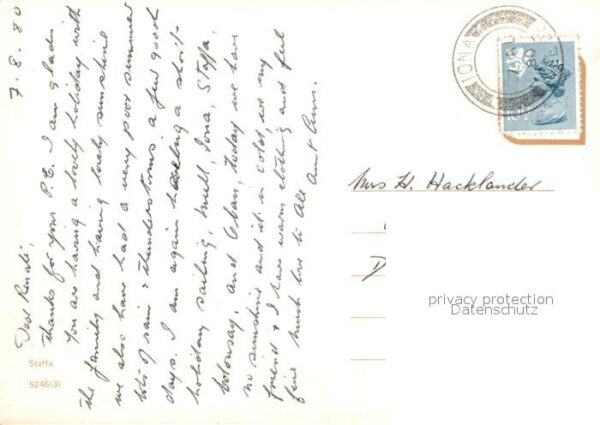 7. 8. 80
Dear Renate,
Thanks for your P.C. I am glad
you are having a lovely holiday with
the family and having lovely sunshine
we also have had a very poor summer
lots of rain & thunderstorms a few good
days. I am again having a short
holiday sailing, Mull, Iona, Staffa,
Colonsay, and Oban, today we have
no sunshine and it is cold, but my
friend & I have warm clothing and feel
fine much love to all Aunt Anns.
Staffa.
5246(3)
IONA
7 AUG
80
10½
Mrs H. Hacklander
D
privacy protection
Datenschutz